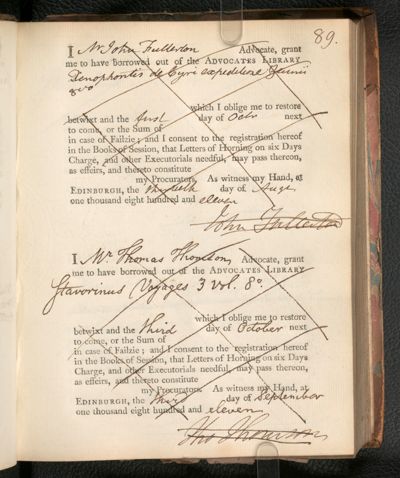 89.
I Mr John Fullerton Advocate, grant
me to have borrowed out of the ADVOCATES LIBRARY
Xenophontis de Cyri expeditione
8vo
which I oblige me to restore
betwixt and the first day of Octr next
to come, or the Sum of
in case of Failzie; and I consent to the registration hereof
in the Books of Session, that Letters of Horning on six Days
Charge, and other Executorials needful, may pass thereon,
as effeirs, and thereto constitute
my Procurators. As witness my Hand, at
EDINBURGH, the day of
one thousand eight hundred and eleven
John Fullerton
I Mr Thomas Thomson, Advocate, grant
me to have borrowed out of the ADVOCATES LIBRARY
Stavorinus Voyages 3 vol. 8o.
which I oblige me to restore
betwixt and the third day of October next
to come, or the Sum of
in case of Failzie; and I consent to the registration hereof
in the Books of Session, that Letters of Horning on six Days
Charge, and other Executorials needful, may pass thereon,
as effeirs, and thereto constitute
my Procurators. As witness my Hand, at
EDINBURGH, the third day of September
one thousand eight hundred and eleven
Tho Thomson